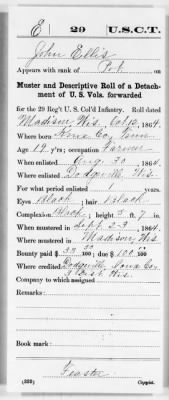 E 29 U.S.C.T.
John Ellis
Appears with rank of Pvt. on
Muster and Descriptive Roll of a Detach-
ment of U. S. Vols. forwarded
for the 29 Reg't U. S. Col'd Infantry. Roll dated
Madison, Wis. 1864.
Where born Co, Tenn
Age 19 y'rs; occupation Farmer
When enlisted Aug. 30, 1864.
Where enlisted Dodgeville Wis
For what period enlisted 1 years.
Eyes Black; hair Black
Complexion Black; height 5 ft. 7 in.
When mustered in Sept. 23, 1864.
Where mustered in Madison, Wis
Bounty paid $33 33/100; due $100 00/100
Where credited Dodgeville, Iowa Co,
Dist. Wis.
Company to which assigned
Remarks:
Book mark:
(339) Copyist.